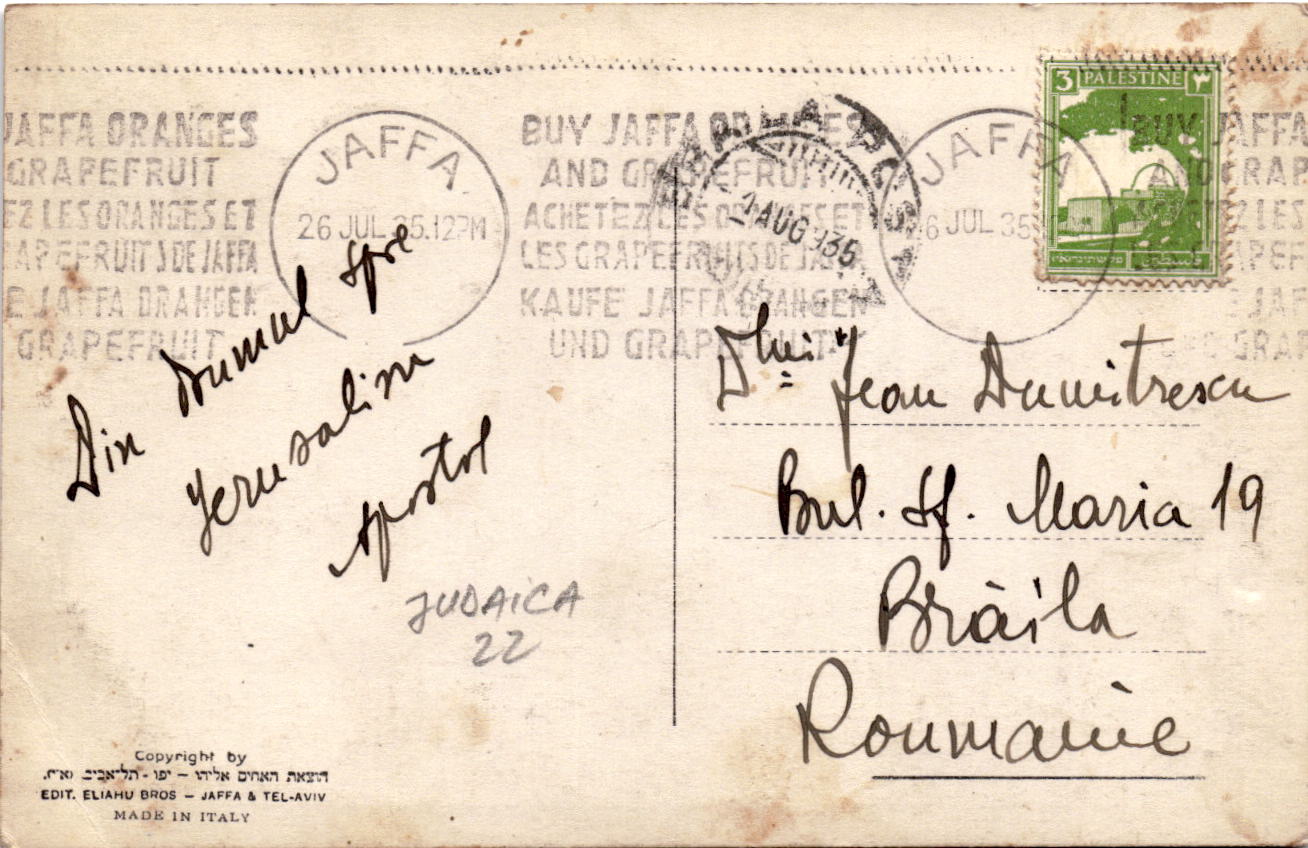 JAFFA ORANGES
GRAPEFRUIT
EZ LES ORANGES ET
APEFRUITS DE JAFFA
E JAFFA ORANGEN
GRAPEFRUIT
JAFFA
26 JUL 35.12PM
BUY JAFFA ORANGES
AND GRAPEFRUIT
ACHETEZ LES ORANGES ET
LES GRAPEFRUITS DE JAFFA
KAUFE JAFFA ORANGEN
UND GRAPEFRUIT
1 AUG 935
JAFFA
6 JUL 35
3 PALESTINE ٣
فلسطين
BUY JAFFA
AND GRAP
Z LES
APEF
JAF
GRA
Din drumul spre
Jerusalim
Apostol
JUDAICA
22
Dlui Jean Dumitrescu
Bul. Sf. Maria 19
Brăila
Roumanie
Copyright by
הוצאת האחים אליהו – יפו - תל־אביב (א״י).
EDIT. ELIAHU BROS – JAFFA & TEL-AVIV
MADE IN ITALY